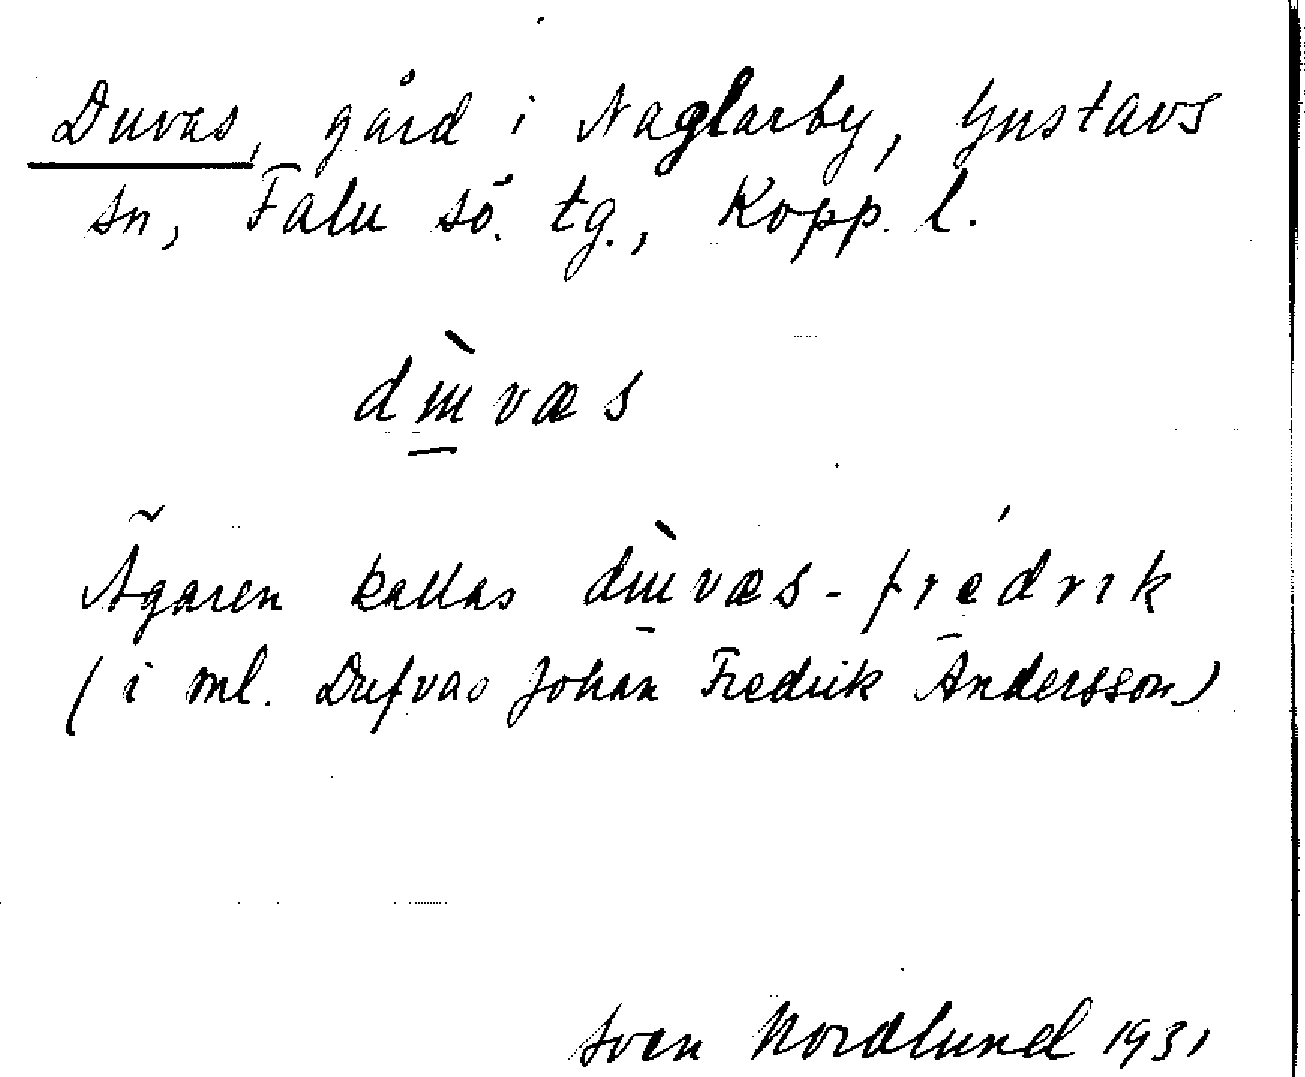 Duvas, gård i Naglarby, Gustavs
sn, Falu sö. tg., Kopp. l.
dɯ̱̀væs
Ägaren kallas dɯ̱̀væs-frédrɪk
(i ml. Dufvas Johan Fredrik Andersson)
Sven Nordlund 1931